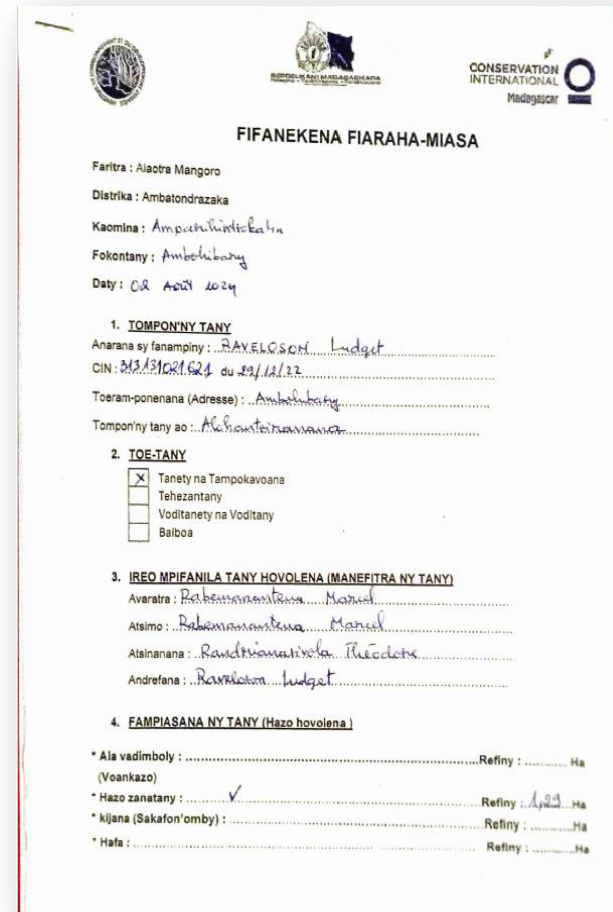 MINISTERE DE L'ENVIRONNEMENT ET DU DEVELOPPEMENT DURABLE
REPOBLIKAN'I MADAGASIKARA
Fitiavana - Tanindrazana - Fandrosoana
CONSERVATION
INTERNATIONAL
Madagascar
FIFANEKENA FIARAHA-MIASA
Faritra : Alaotra Mangoro
Distrika : Ambatondrazaka
Kaomina : Amparihintsokatra
Fokontany : Ambohibary
Daty : 02 Août 2024
1. TOMPON'NY TANY
Anarana sy fanampiny : RAVELOSON Ludget
CIN : 313131021621 du 29/12/22
Toeram-ponenana (Adresse) : Ambohibary
Tompon'ny tany ao :
2. TOE-TANY
X Tanety na Tampokavoana
Tehezantany
Voditanety na Voditany
Baiboa
3. IREO MPIFANILA TANY HOVOLENA (MANEFITRA NY TANY)
Avaratra : Rabemanantena Marcel
Atsimo : Rabemanantena Marcel
Atsinanana : Randrianarivola Théodore
Andrefana : Raveloson Ludget
4. FAMPIASANA NY TANY (Hazo hovolena )
* Ala vadimboly : Refiny : Ha
(Voankazo)
* Hazo zanatany : ✓ Refiny : 1,29 Ha
* kijana (Sakafon'omby) : Refiny : Ha
* Hafa : Refiny : Ha